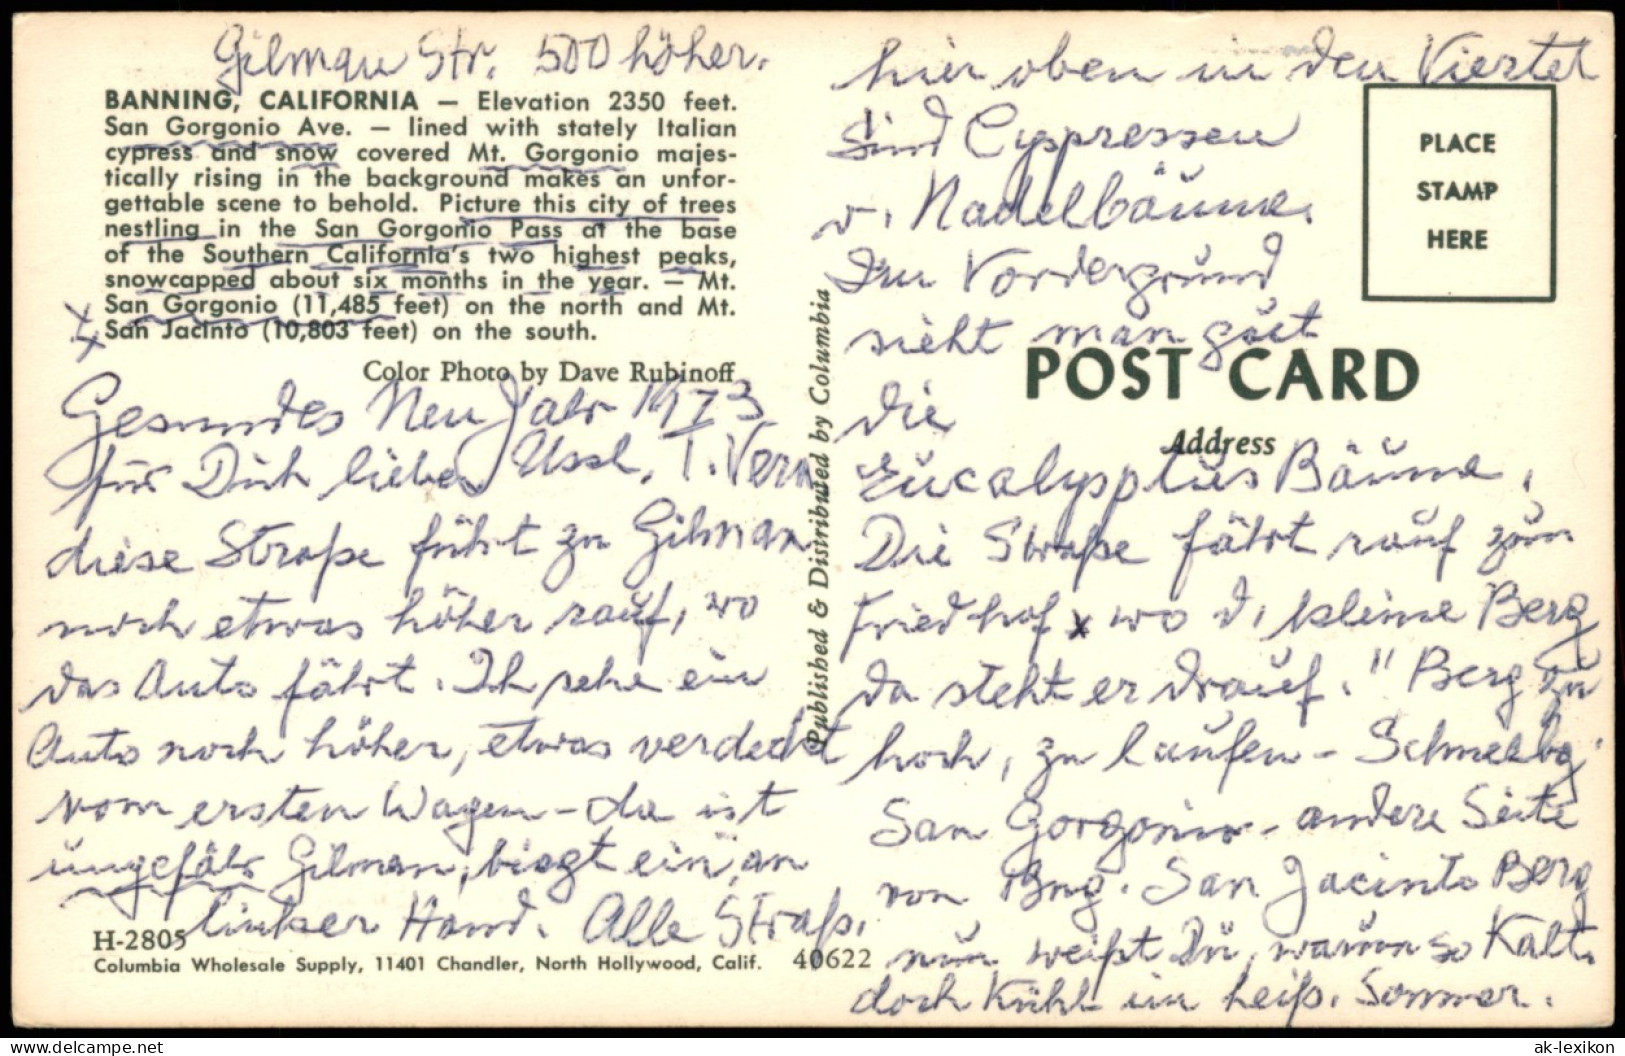 Gilman Str. 500 höher.
BANNING, CALIFORNIA — Elevation 2350 feet.
San Gorgonio Ave. — lined with stately Italian
cypress and snow covered Mt. Gorgonio majes-
tically rising in the background makes an unfor-
gettable scene to behold. Picture this city of trees
nestling in the San Gorgonio Pass at the base
of the Southern California's two highest peaks,
snowcapped about six months in the year. — Mt.
San Gorgonio (11,485 feet) on the north and Mt.
San Jacinto (10,803 feet) on the south.
Color Photo by Dave Rubinoff
Gesundes Neu Jahr 1973
für Dich liebe T. Vera
diese Straße führt zu Gilman
noch etwas höher rauf, wo
das Auto fährt. Ich sehe ein
Auto noch höher, etwas verdeckt
vom ersten Wagen – da ist
ungefähr Gilman, biegt ein, an
linker Hand. Alle Straß.
H-2805
Columbia Wholesale Supply, 11401 Chandler, North Hollywood, Calif. 40622
Published & Distributed by Columbia
hier oben in den Viertel
sind Cypressen
v. Nadelbäume.
Im Vordergrund
sieht man gut
die
Eucalypptus Bäume,
Die Straße fährt rauf zum
Friedhof x wo d. kleine Berg
da steht er drauf." Berg zu
hoch, zu laufen – Schneebg.
San Gorgonio – andere Seite
von Bng. San Jacinto Berg
nun weißt Du, warum so Kalt.
doch Kühl im heiß. Sommer.
PLACE
STAMP
HERE
POST CARD
Address
DELCAMPE.NET
ak-lexikon